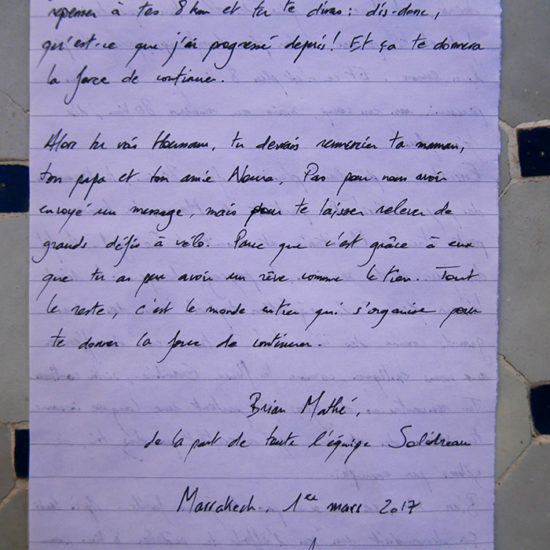 repenser à tes 8 km et tu te diras : dis-donc,
qu'est-ce que j'ai progressé depuis ! Et ça te donnera
la force de continuer.
Alors tu vois Houmam, tu devrais remercier ta maman,
ton papa et ton amie Noura. Pas pour nous avoir
envoyé un message, mais pour te laisser relever de
grands défis à vélo. Parce que c'est grâce à eux
que tu as pu avoir un rêve comme le tien. Tout
le reste, c'est le monde entier qui s'organise pour
te donner la force de continuer.
Brian Mathé,
de la part de toute l'équipe
Marrakech, 1er mars 2017